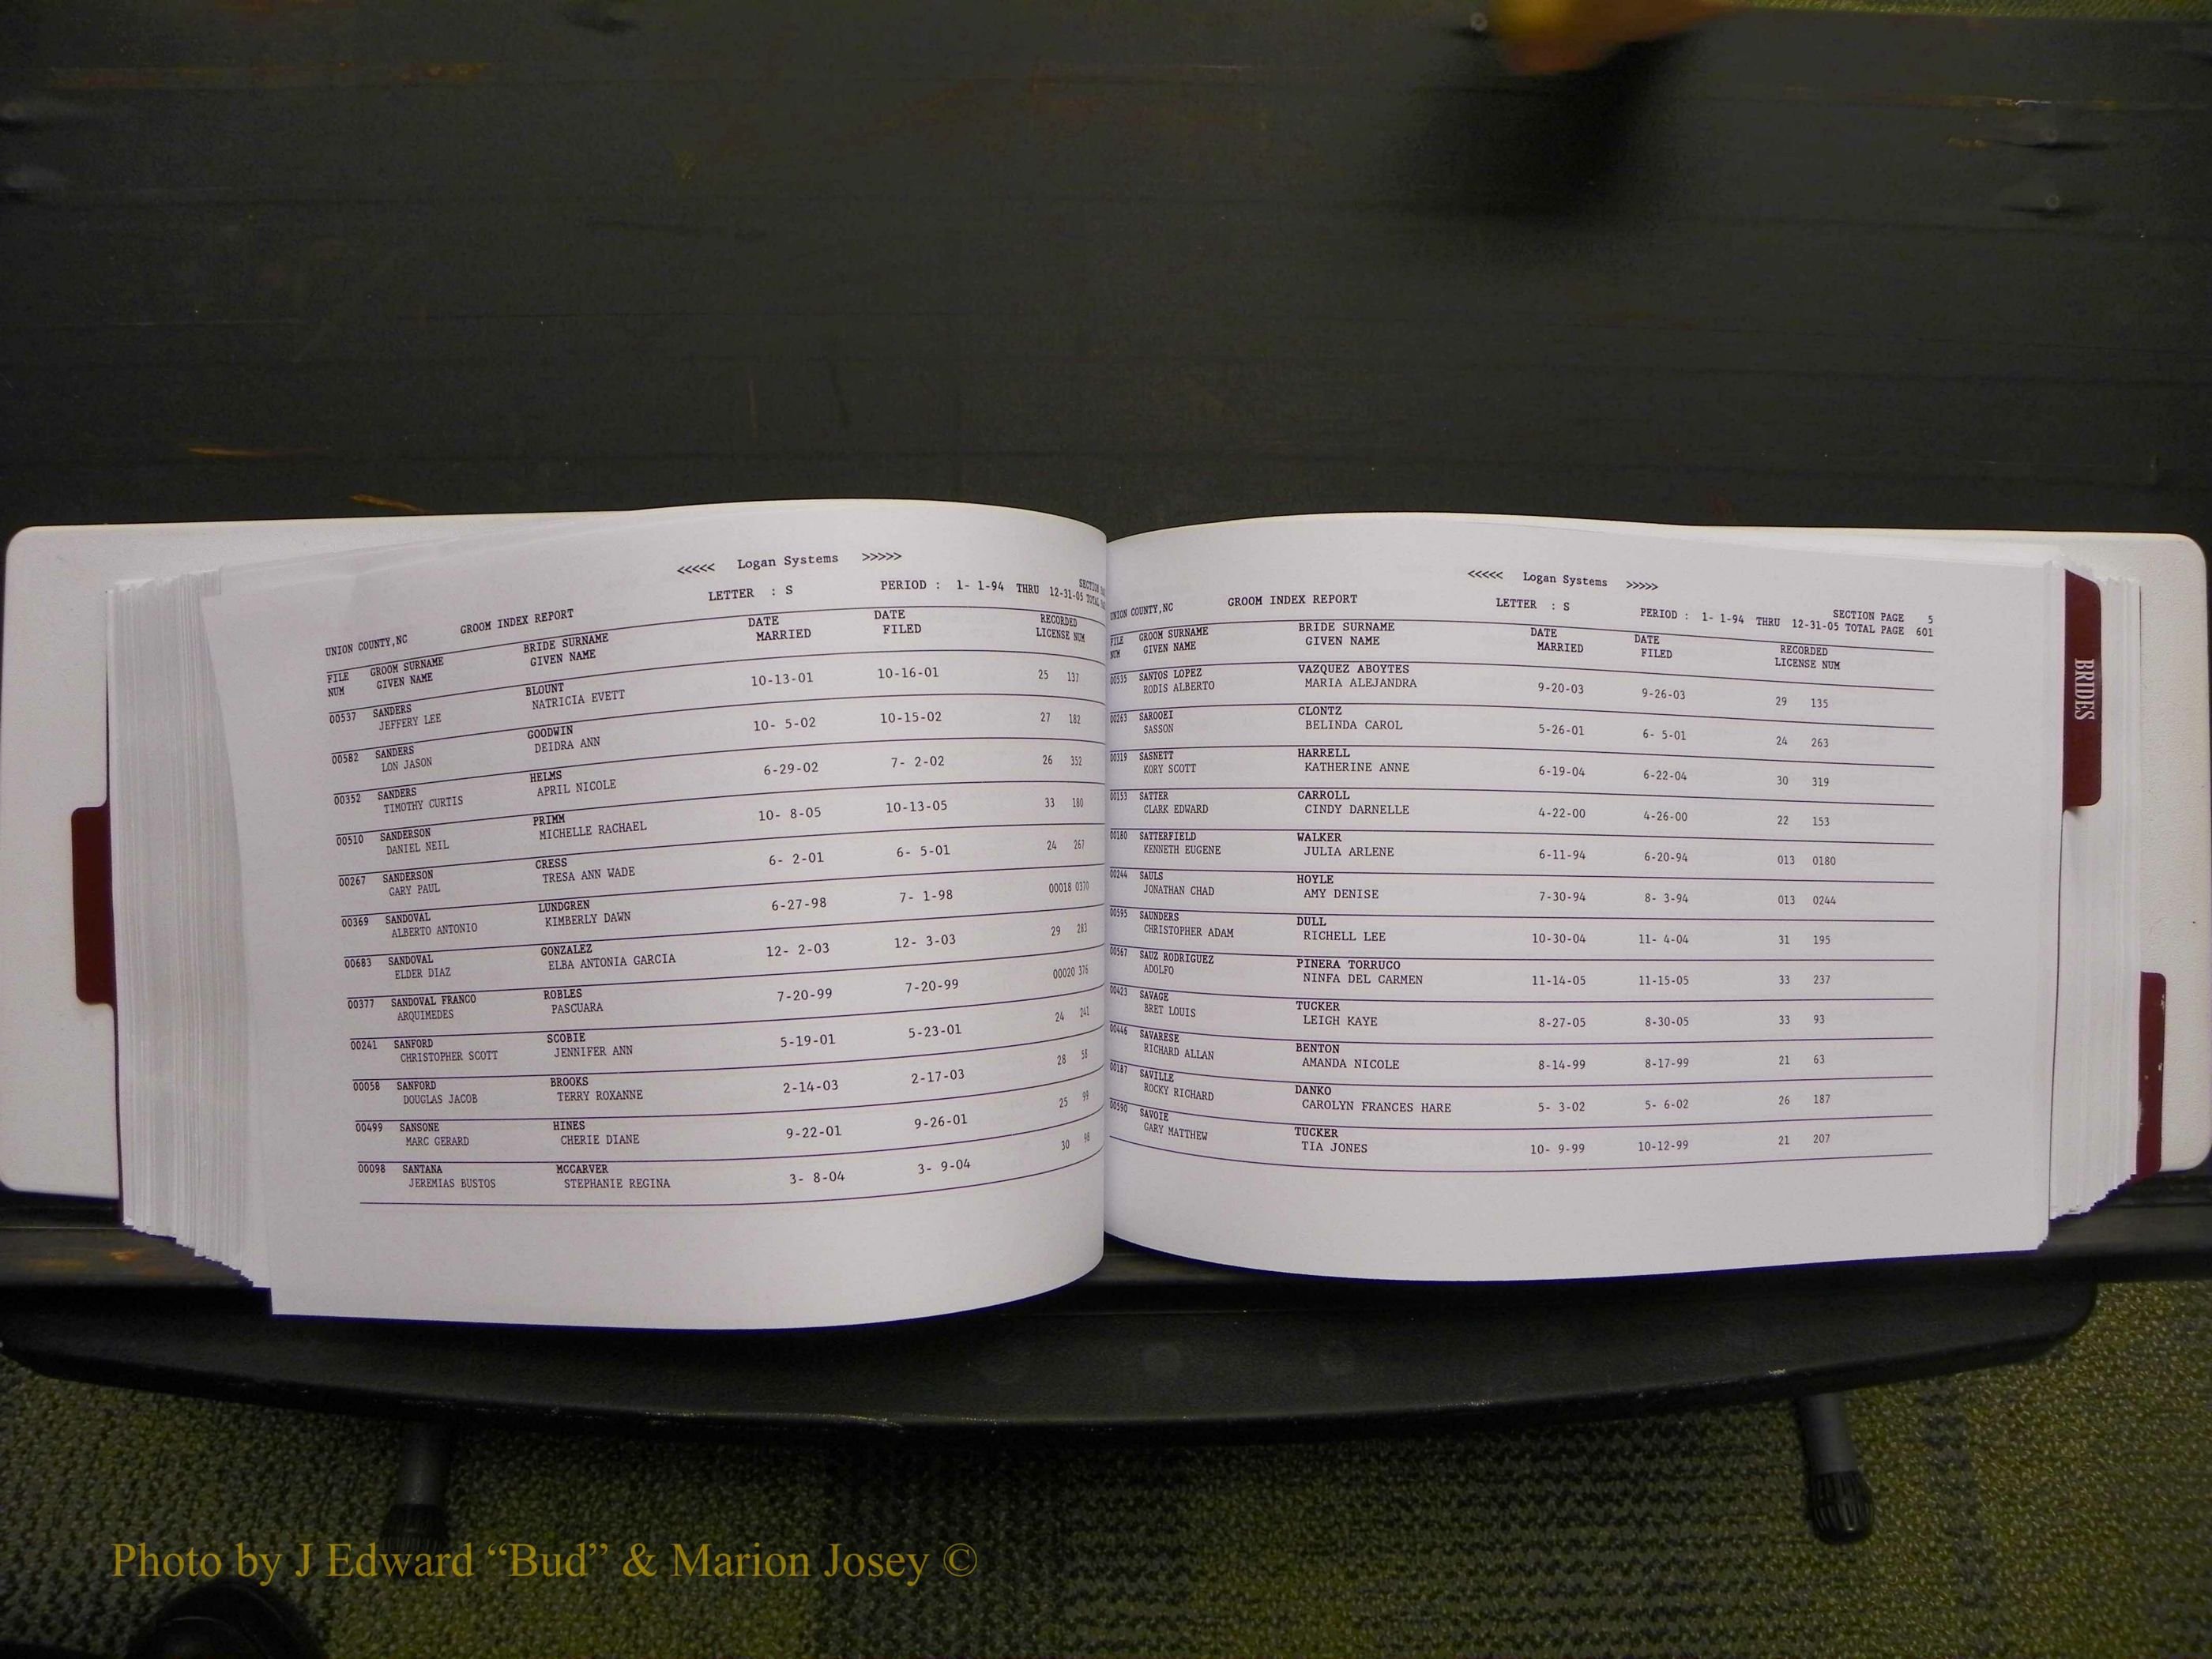 <<<<< Logan Systems >>>>>
UNION COUNTY,NC GROOM INDEX REPORT LETTER : S PERIOD : 1- 1-94 THRU 12-31-05
FILE GROOM SURNAME BRIDE SURNAME DATE DATE RECORDED
NUM GIVEN NAME GIVEN NAME MARRIED FILED LICENSE NUM
00537 SANDERS BLOUNT 10-13-01 10-16-01 25 137
JEFFERY LEE NATRICIA EVETT
00582 SANDERS GOODWIN 10- 5-02 10-15-02 27 182
LON JASON DEIDRA ANN
00352 SANDERS HELMS 6-29-02 7- 2-02 26 352
TIMOTHY CURTIS APRIL NICOLE
00510 SANDERSON PRIMM 10- 8-05 10-13-05 33 180
DANIEL NEIL MICHELLE RACHAEL
00267 SANDERSON CRESS 6- 2-01 6- 5-01 24 267
GARY PAUL TRESA ANN WADE
00369 SANDOVAL LUNDGREN 6-27-98 7- 1-98 00018 0370
ALBERTO ANTONIO KIMBERLY DAWN
00683 SANDOVAL GONZALEZ 12- 2-03 12- 3-03 29 283
ELDER DIAZ ELBA ANTONIA GARCIA
00377 SANDOVAL FRANCO ROBLES 7-20-99 7-20-99 00020 376
ARQUIMEDES PASCUARA
00241 SANFORD SCOBIE 5-19-01 5-23-01 24 241
CHRISTOPHER SCOTT JENNIFER ANN
00058 SANFORD BROOKS 2-14-03 2-17-03 28 58
DOUGLAS JACOB TERRY ROXANNE
00499 SANSONE HINES 9-22-01 9-26-01 25 99
MARC GERARD CHERIE DIANE
00098 SANTANA MCCARVER 3- 8-04 3- 9-04 30 98
JEREMIAS BUSTOS STEPHANIE REGINA
<<<<< Logan Systems >>>>>
SECTION PAGE 5
UNION COUNTY,NC GROOM INDEX REPORT LETTER : S PERIOD : 1- 1-94 THRU 12-31-05 TOTAL PAGE 601
FILE GROOM SURNAME BRIDE SURNAME DATE DATE RECORDED
NUM GIVEN NAME GIVEN NAME MARRIED FILED LICENSE NUM
00535 SANTOS LOPEZ VAZQUEZ ABOYTES 9-20-03 9-26-03 29 135
RODIS ALBERTO MARIA ALEJANDRA
00263 SAROOEI CLONTZ 5-26-01 6- 5-01 24 263
SASSON BELINDA CAROL
00319 SASNETT HARRELL 6-19-04 6-22-04 30 319
KORY SCOTT KATHERINE ANNE
00153 SATTER CARROLL 4-22-00 4-26-00 22 153
CLARK EDWARD CINDY DARNELLE
00180 SATTERFIELD WALKER 6-11-94 6-20-94 013 0180
KENNETH EUGENE JULIA ARLENE
00244 SAULS HOYLE 7-30-94 8- 3-94 013 0244
JONATHAN CHAD AMY DENISE
00595 SAUNDERS DULL 10-30-04 11- 4-04 31 195
CHRISTOPHER ADAM RICHELL LEE
00567 SAUZ RODRIGUEZ PINERA TORRUCO 11-14-05 11-15-05 33 237
ADOLFO NINFA DEL CARMEN
00423 SAVAGE TUCKER 8-27-05 8-30-05 33 93
BRET LOUIS LEIGH KAYE
00446 SAVARESE BENTON 8-14-99 8-17-99 21 63
RICHARD ALLAN AMANDA NICOLE
00187 SAVILLE DANKO 5- 3-02 5- 6-02 26 187
ROCKY RICHARD CAROLYN FRANCES HARE
00590 SAVOIE TUCKER 10- 9-99 10-12-99 21 207
GARY MATTHEW TIA JONES
BRIDES
Photo by J Edward “Bud” & Marion Josey ©